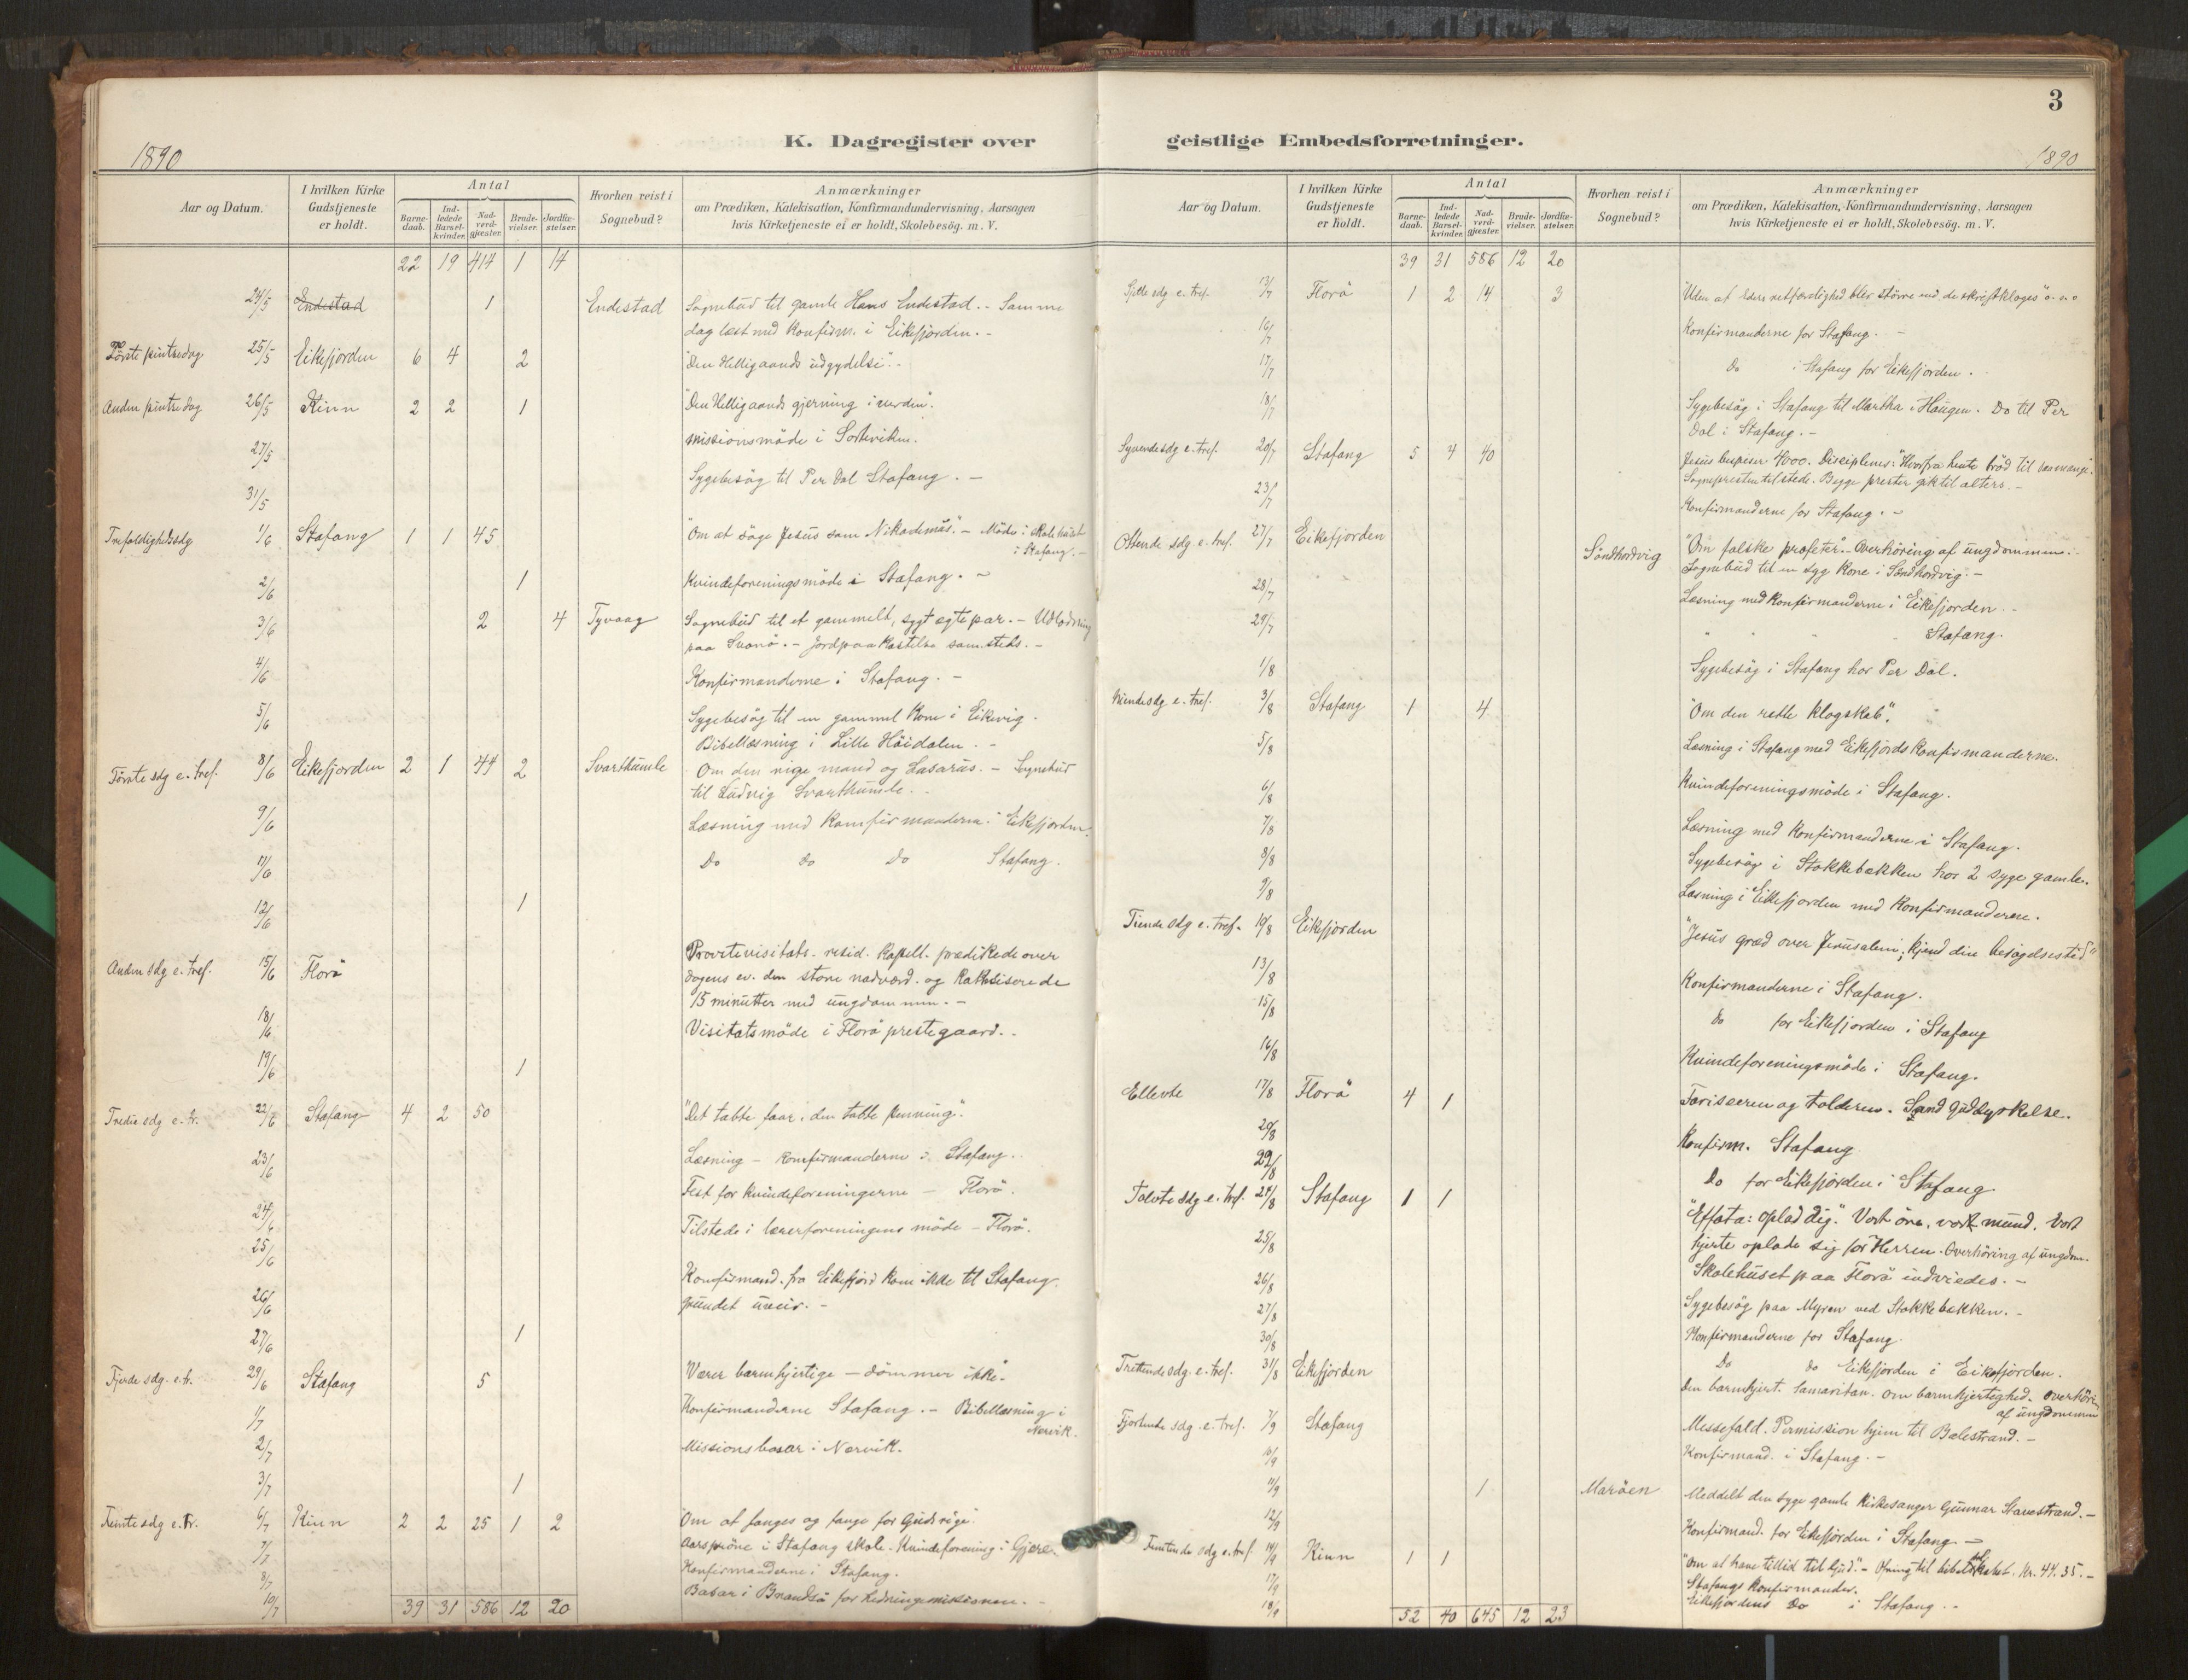 3
1890
K. Dagregister over geistlige Embedsforretninger.
1890
Aar og Datum.
I hvilken Kirke Gudstjeneste er holdt.
Antal
Barnedaab.
Indledede Barselkvinder.
Nadverdgjester.
Brudevielser.
Jordfæstelser.
Hvorhen reist i Sognebud?
Anmærkninger
om Prædiken, Katekisation, Konfirmandundervisning, Aarsagen
hvis Kirketjeneste ei er holdt, Skolebesög. m. V.
22 19 414 1 14
24/5 Endestad 1 Endestad Sognebud til gamle Hans Endestad. - Samme
dag læst med Konfirm. i Eikefjorden. -
Første pintsedag 25/5 Eikefjorden 6 4 2 "Den Helligaands udgydelse". -
Anden pintsedag 26/5 Kinn 2 2 1 "Den Helligaands gjerning i verden".
27/5 Missionsmöde i
31/5 Sygebesög til Per Dal Stafang. -
Trefoldighedssdg 1/6 Stafang 1 1 45 "Om at söge Jesus som Nikodemus". - Möde i skolehuset
i Stafang. -
2/6 1 Kvindeforeningsmöde i Stafang. -
3/6 2 4 Tyvaag Sognebud til et gammelt, sygt egtepar. - Udlodning
paa Svanö. - Jordpaakastelse samsteds. -
4/6 Konfirmanderne i Stafang. -
5/6 Sygebesög til en gammel Kone i Eikevig.
Bibellæsning i Lille Höidalen. -
Første sdg e. tref. 8/6 Eikefjorden 2 1 44 2 Svarthumle Om den rige mand og Lasarus. - Sognebud
til Ludvig Svarthumle. -
9/6 Læsning med Konfirmanderne i Eikefjorden.
11/6 Do do Do Stafang.
12/6 1
Anden sdg e. tref. 15/6 Florö Provstevisitats. resid. Kapell. prædikede over
dagens ev. den store nadverd. og Katekiserede
15 minutter med ungdommen. -
18/6 Visitatsmöde i Florö prestegaard. -
19/6 1
Tredie sdg e. tr. 22/6 Stafang 4 2 50 "Det tabte faar, den tabte penning".
23/6 Læsning - Konfirmanderne i Stafang.
24/6 Fest for Kvindeforeningerne - Florö.
25/6 Tilstede i lærerforeningens möde - Florö.
26/6 Konfirmand. fra Eikefjord kom ikke til Stafang
grundet uveir. -
27/6 1
Fjerde sdg. e. tr. 29/6 Stafang 5 Værer barmhjertige - dömmer ikke".
1/7 Konfirmanderne Stafang. - Bibellæsning i
Nærvik.
2/7 Missionsbasar i Nærvik.
3/7 1
Femte sdg e. tr. 6/7 Kinn 2 2 25 1 2 Om at fanges og fange for Guds rige.
7/7 Aarspröve i Stafang skole. Kvindeforening i
8/7 Konfirmanderne i Stafang.
10/7 Basar i Brandsö for
39 31 586 12 20
Aar og Datum.
I hvilken Kirke Gudstjeneste er holdt.
Antal
Barnedaab.
Indledede Barselkvinder.
Nadverdgjester.
Brudevielser.
Jordfæstelser.
Hvorhen reist i Sognebud?
Anmærkninger
om Prædiken, Katekisation, Konfirmandundervisning, Aarsagen
hvis Kirketjeneste ei er holdt, Skolebesög. m. V.
39 31 586 12 20
Sjette sdg e. tref. 13/7 Florö 1 2 14 3 "Uden at Eders retfærdighed blir större end de skriftkloges" o. s. v.
16/7 Konfirmanderne for Stafang. -
17/7 Do i Stafang for Eikefjorden.
18/7 Sygebesög i Stafang til Martha i Haugen. Do til Per
Dal i Stafang. -
Syvende sdg e. tref. 20/7 Stafang 5 4 40 Jesus bespiser 4000. Disciplenes: "Hvorfra hente bröd til saa mange".
Sognepresten tilstede. Begge prester gik til alters. -
23/7 Konfirmanderne for Stafang. -
Ottende sdg e. tref. 27/7 Eikefjorden Söndhordvig "Om falske profeter". - Overhöring af ungdommen.
Sognebud til en syg Kone i Söndhordvig. -
28/7 Læsning med Konfirmanderne i Eikefjorden. -
29/7 " " " Stafang.
1/8 Sygebesög i Stafang hos Per Dal.
Niende sdg e. tref. 3/8 Stafang 1 4 "Om den rette klogskab".
5/8 Læsning i Stafang med Eikefjords Konfirmanderne.
6/8 Kvindeforeningsmöde i Stafang.
7/8 Læsning med Konfirmanderne i Stafang.
8/8 Sygebesög i Stokkebækken hos 2 syge gamle.
9/8 Læsning i Eikefjorden med Konfirmanderne.
Tiende sdg e. tref. 10/8 Eikefjorden "Jesus græd over Jerusalem; kjend din besögelsestid"
13/8 Konfirmanderne i Stafang.
15/8 Do for Eikefjorden i Stafang
16/8 Kvindeforeningsmöde i Stafang.
Ellevte 17/8 Florö 4 1 Fariseeren og tolderen. Sand Guddyrkelse.
20/8 Konfirm. Stafang
22/8 Do for Eikefjorden i Stafang
Tolvte sdg e. tref. 24/8 Stafang 1 1 "Effata: oplad dig". Vort öre, vort mund, vort
hjerte oplade sig for Herren. Overhöring af ungdom.
25/8 Skolehuset paa Florö indviedes. -
26/8 Sygebesög paa Myren ved Stokkebækken. -
27/8 Konfirmanderne for Stafang.
30/8 Do do Eikefjorden i Eikefjorden.
Trettende sdg. e. tref. 31/8 Eikefjorden Den barmhjert. Samaritan. Om barmhjertighed. Overhöring
af ungdommen
Fjortende sdg. e. tref. 7/9 Stafang Messefald. Permission hjem til Balestrand. -
10/9 Konfirmand. i Stafang. -
11/9 1 Maröen Meddelt den syge gamle Kirkesanger Gunnar Stavestrand. -
12/9 Konfirmand. for Eikefjorden i Stafang -
Femtende sdg e. tref. 14/9 Kinn 1 1 "Om at have tillid til Gud". - Ofring til bibelselskabet. Kr. 44.35. -
17/9 Stafangs Konfirmander.
18/9 Eikefjordens Do i Stafang. -
52 40 645 12 23